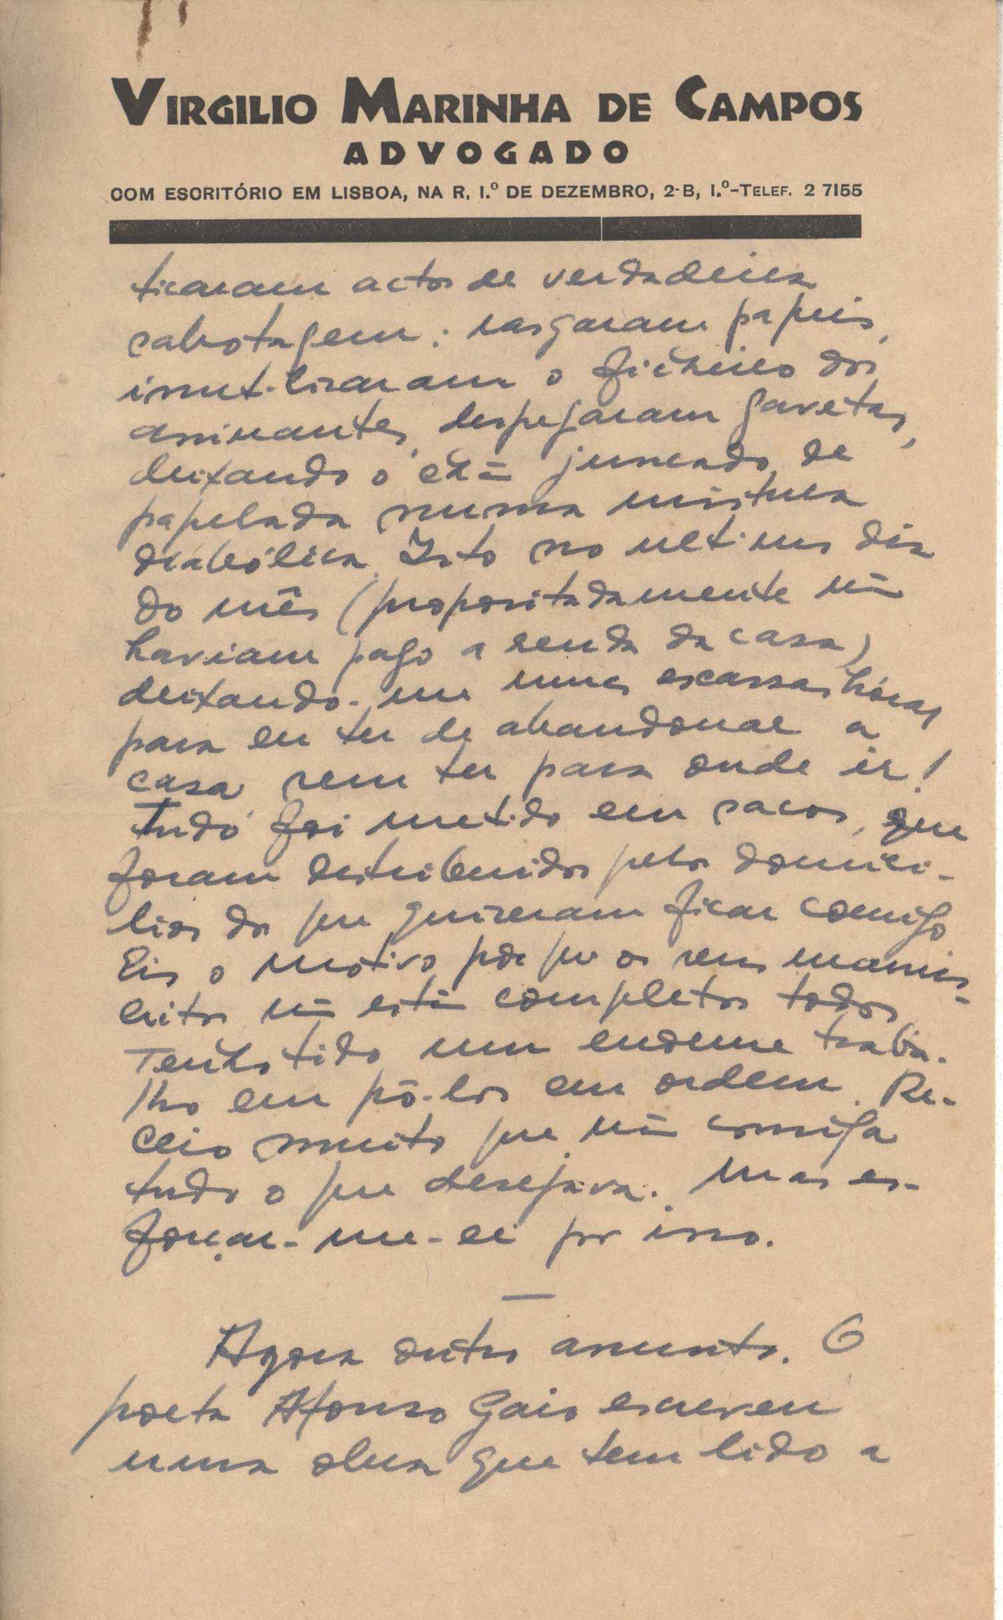 VIRGILIO MARINHA DE CAMPOS
ADVOGADO
COM ESCRITÓRIO EM LISBOA, NA R. 1.º DE DEZEMBRO, 2-B, 1.º-TELEF. 2 7155
ticaram actos de verdadeira
sabotagem: rasgaram papeis,
inutilizaram o ficheiro dos
assinantes, despejaram gavetas,
deixando o chão juncado de
papelada numa mistura
diabólica. Isto no ultimo dia
do mês (propositadamente não
haviam pago a renda da casa)
deixando-me umas escassas horas
para eu ter de abandonar a
casa, sem ter para onde ir!
Tudo foi metido em sacos, que
foram distribuidos pelos domici-
lios dos que quizeram ficar comigo
Eis o motivo por que os seus manus-
critos não estão completos todos.
Tenho tido um enorme traba-
lho em pô-los em ordem. Re-
ceio muito que não consiga
tudo o que desejava. Mas es-
forçar-me-ei por isso.
—
Agora outro assunto. O
poeta Afonso Gaio escreveu
uma obra que tem lido a